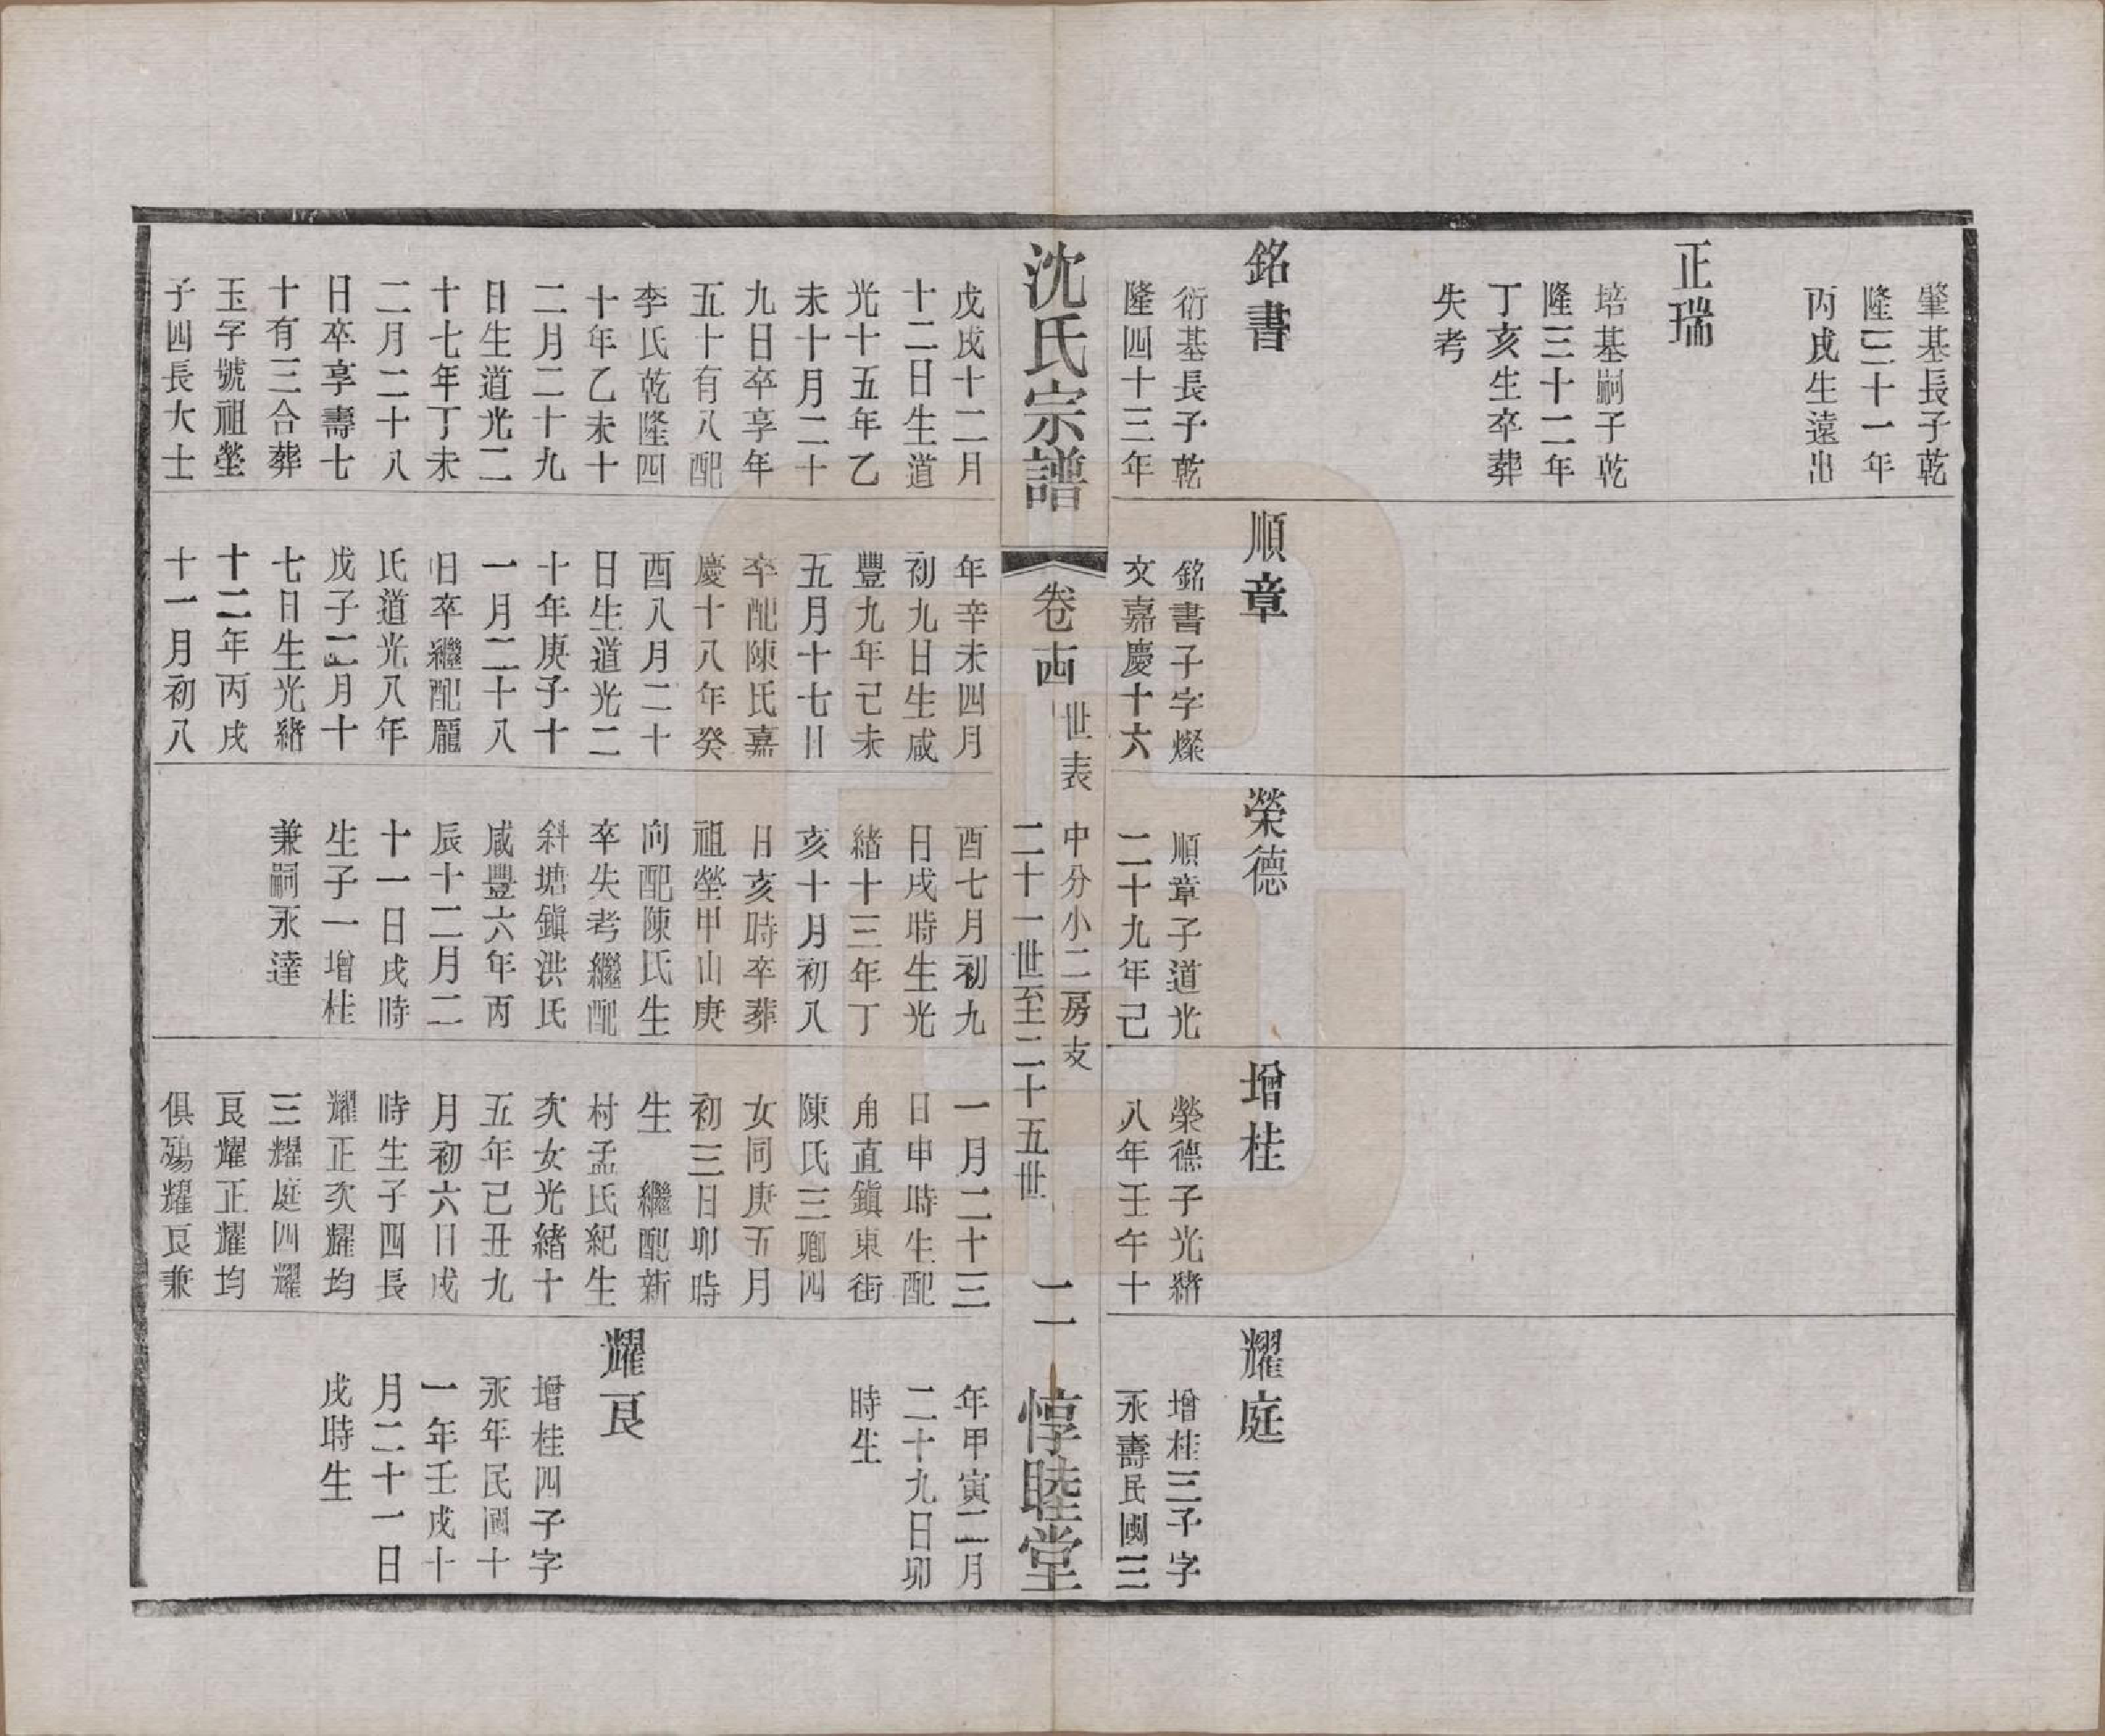 肇基長子乾
隆三十一年
丙戌生遠出
正瑞
培基嗣子乾
隆三十二年
丁亥生卒葬
失考
銘書
衍基長子乾
隆四十三年
順章
銘書子字燦
文嘉慶十六
榮德
順章子道光
二十九年己
增桂
榮德子光緒
八年壬午十
耀庭
增桂三子字
永壽民國三
沈氏宗譜
卷十四
世表
中分小二房支
二十一世至二十五世
二
惇睦堂
戊戌十二月
十二日生道
光十五年乙
未十月二十
九日卒享年
五十有八配
李氏乾隆四
十年乙未十
二月二十九
日生道光二
十七年丁未
二月二十八
日卒享壽七
十有三合葬
玉字號祖塋
子四長大士
年辛未四月
初九日生咸
豐九年己未
五月十七日
卒配陳氏嘉
慶十八年癸
酉八月二十
日生道光二
十年庚子十
一月二十八
日卒繼配龎
氏道光八年
戊子二月十
七日生光緒
十二年丙戌
十一月初八
酉七月初九
日戌時生光
緒十三年丁
亥十月初八
日亥時卒葬
祖塋甲山庚
向配陳氏生
卒失考繼配
斜塘鎮洪氏
咸豐六年丙
辰十二月二
十一日戌時
生子一增桂
兼嗣永達
一月二十三
日申時生配
甪直鎮東街
陳氏三卿四
女同庚五月
初三日卯時
生 繼配新
村孟氏紀生
次女光緒十
五年己丑九
月初六日戌
時生子四長
耀正次耀均
三耀庭四耀
艮耀正耀均
俱殤耀艮兼
年甲寅二月
二十九日卯
時生
耀艮
增桂四子字
永年民國十
一年壬戌十
月二十一日
戌時生